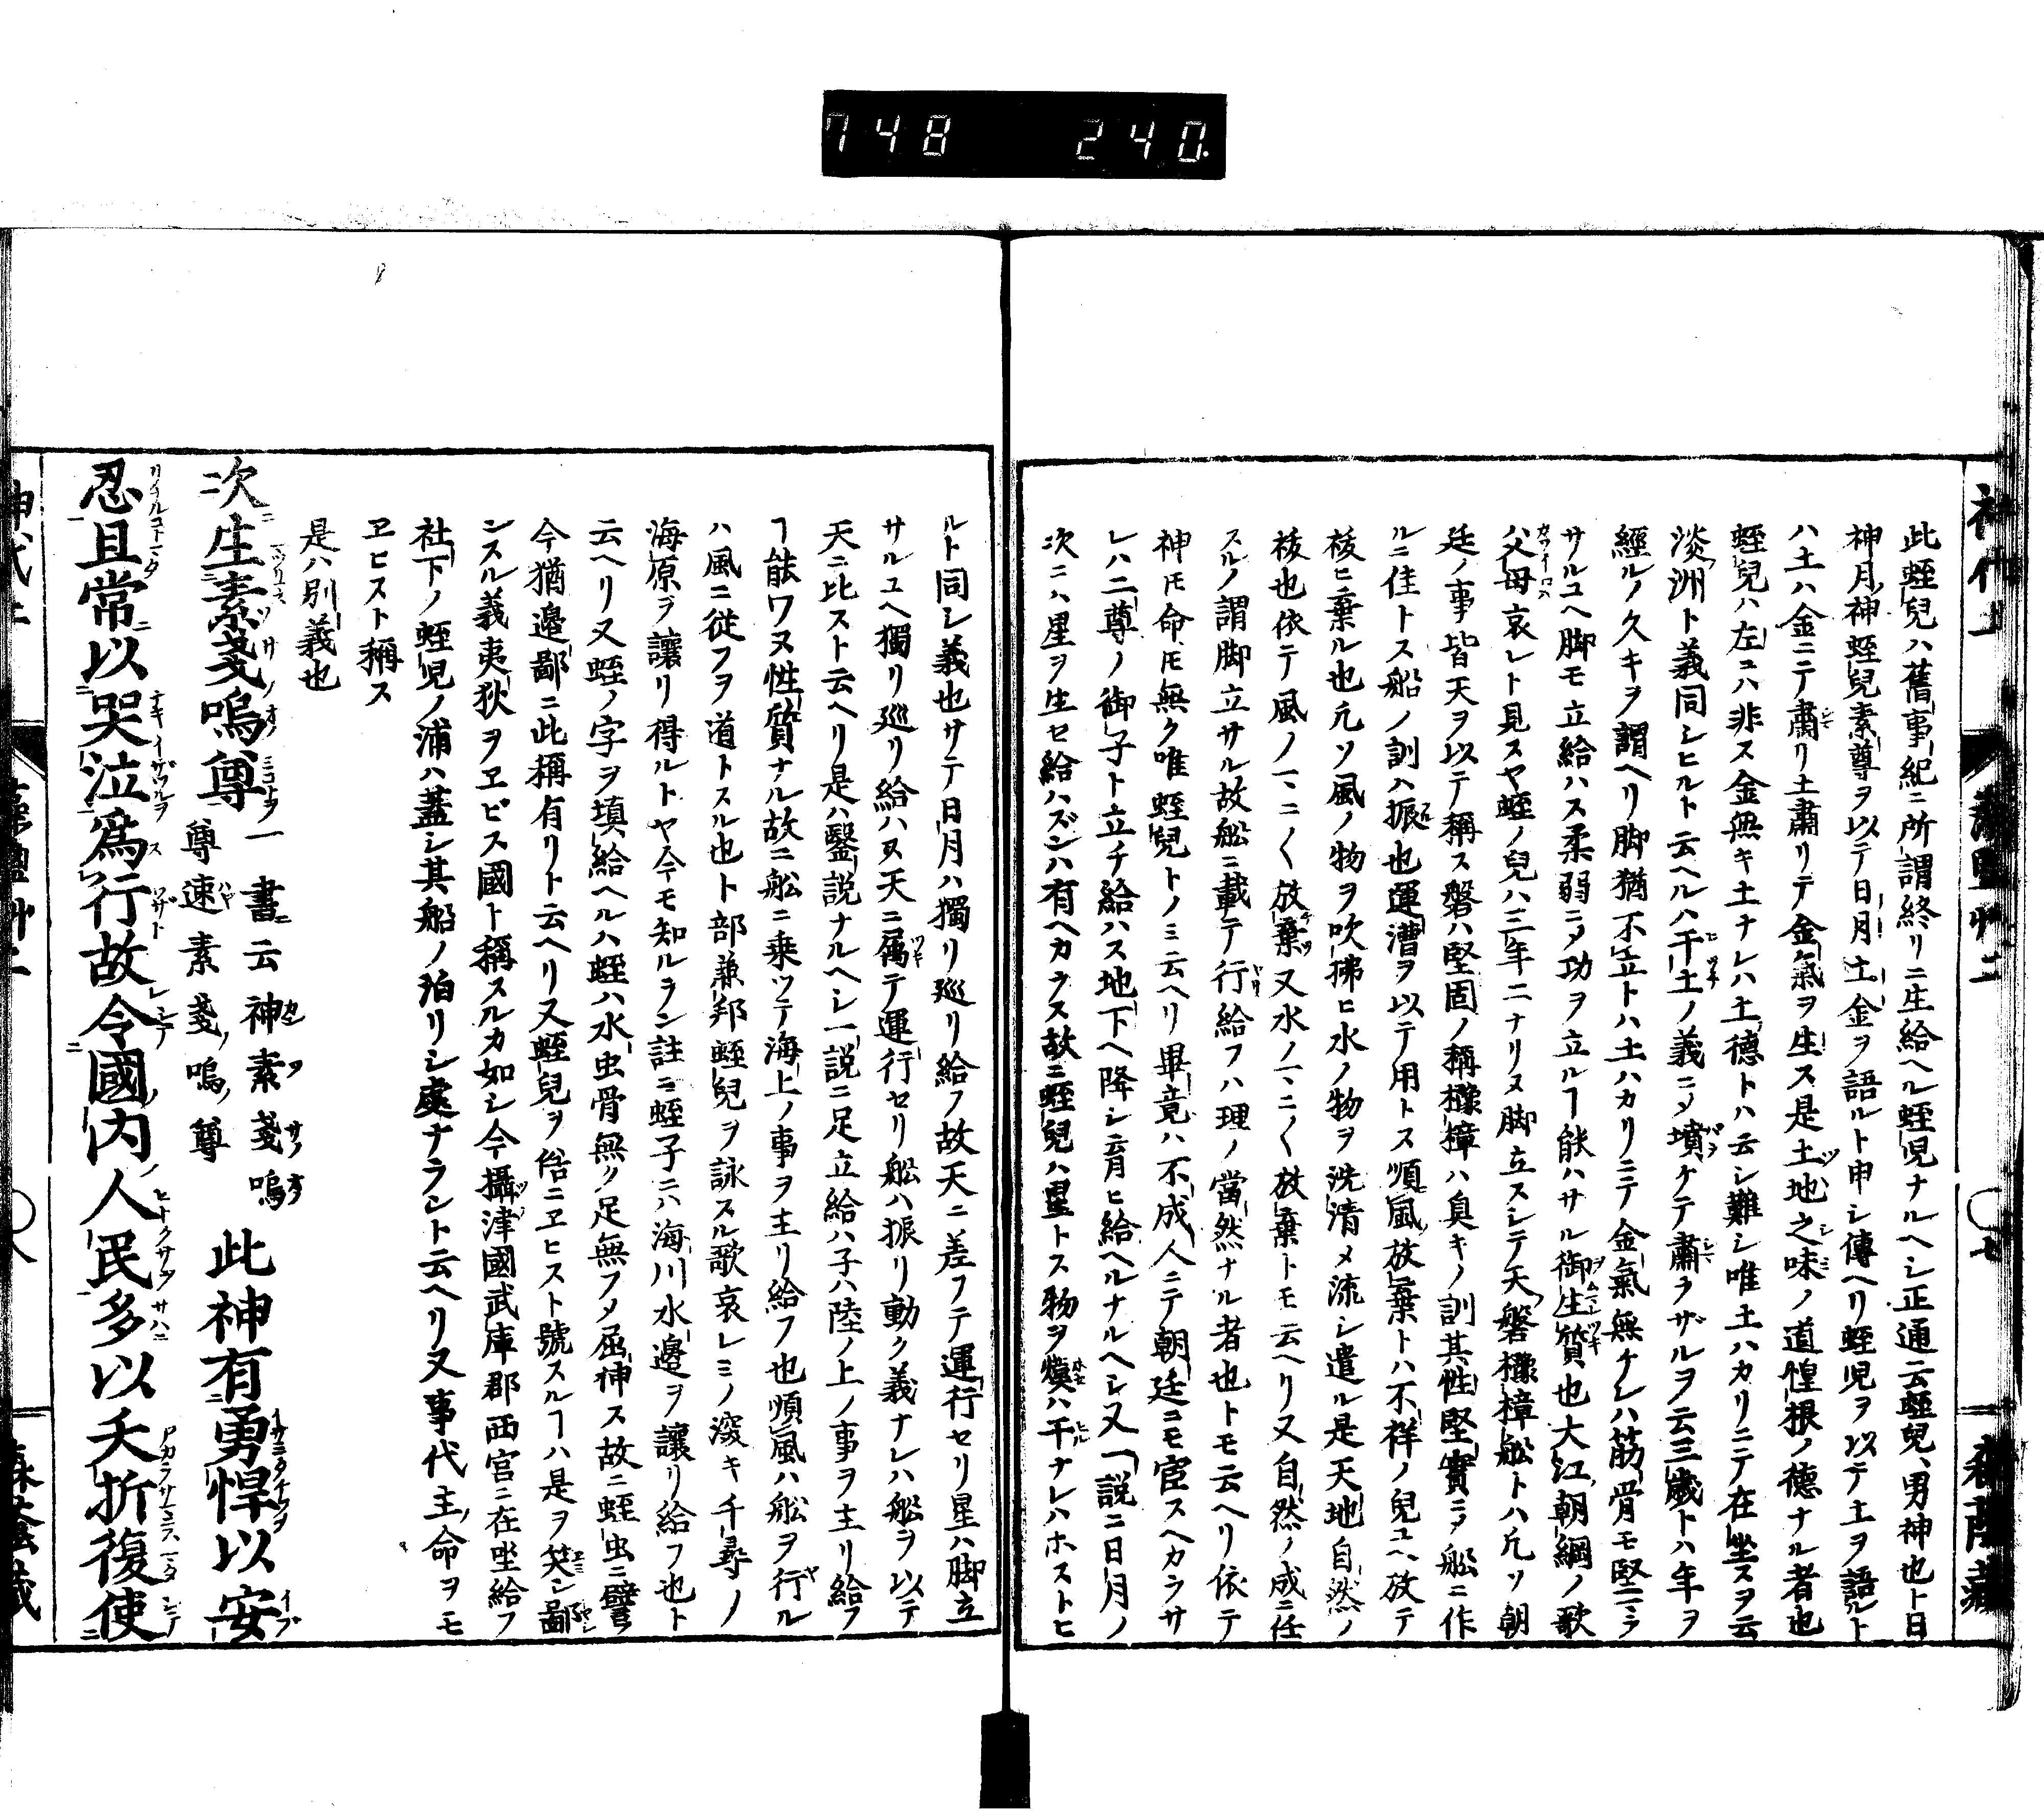 748 240.
此蛭兒ハ舊事紀ニ所謂終リニ生給ヘル蛭児ナルヘシ正通云蛭兒男神也ト日
神月神蛭兒素尊ヲ以テ日月土金ヲ語ルト申シ傳ヘリ蛭児ヲ以テ土ヲ語ルト
ハ土ハ金ニテ肅リ土肅リテ金氣ヲ生ス是土地之味ノ道惶根ノ德ナル者也
蛭兒ハ左ニハ非ス金無キ土ナレハ土德トハ云シ難シ唯土ハカリニテ在坐スヲ云
淡洲ト義同シヒルト云ヘルハ干土ノ義ニシテ墳ケテ肅ラザルヲ云三歳トハ年ヲ
經ルノ久キヲ謂ヘリ脚猶不立トハ土ハカリニテ金氣無ケレハ筋骨モ堅ニシテ
サルユヘ脚モ立給ハス柔弱ニシテ功ヲ立ルヿ能ハサル御生質也大江朝綱ノ歌
父母哀レト見スヤ蛭ノ兒ハ三年ニナリヌ脚立スシテ天磐櫲樟舩トハ凡ソ朝
廷ノ事皆天ヲ以テ稱ス磐ハ堅固ノ稱櫲樟ハ臭キノ訓其性堅實ニシテ舩ニ作
ルニ佳トス船ノ訓ハ振也運漕ヲ以テ用トス順風放棄トハ不祥ノ兒ユヘ放テ
祓ヒ棄ル也凡ソ風ノ物ヲ吹拂ヒ水ノ物ヲ洗清メ流シ遣ル是天地自然ノ
祓也依テ風ノマニ〱放棄又水ノマニ〱放棄トモ云ヘリ又自然ノ成ニ任
スルノ謂脚立サル故舩ニ載テ行給フハ理ノ當然ナル者也トモ云ヘリ依テ
神トモ命トモ無ク唯蛭兒トノミ云ヘリ畢竟ハ不成人ニテ朝廷ニモ宦スヘカラサ
レハ二尊ノ御子ト立チ給ハス地下ヘ降シ育ヒ給ヘルナルヘシ又一説ニ日月ノ
次ニハ星ヲ生セ給ハズンハ有ヘカラス故ニ蛭兒ハ星トス物ヲ熯ハ干ナレハホストヒ
ルト同シ義也サテ日月ハ獨リ巡リ給フ故天ニ差フテ運行セリ星ハ脚立
サルユヘ獨リ巡リ給ハヌ天ニ屬テ運行セリ舩ハ振リ動ク義ナレハ船ヲ以テ
天ニ比スト云ヘリ是ハ鑿説ナルヘシ一説ニ足立給ハ子ハ陸ノ上ノ事ヲ主リ給フ
ヿ能ワヌ性質ナル故ニ舩ニ乗ツテ海上ノ事ヲ主リ給フ也順風ハ舩ヲ行ル
ハ風ニ從フヲ道トスル也ト部兼邦蛭兒ヲ詠スル歌哀レミノ深キ千尋ノ
海原ヲ讓リ得ルトヤ今モ知ルラン註ニ蛭子ニハ海川水邊ヲ讓リ給フ也ト
云ヘリ又蛭ノ字ヲ填給ヘルハ蛭ハ水虫骨無ク足無フシテ屈伸ス故ニ蛭虫ニ譬
今猶邉鄙ニ此稱有リト云ヘリ又蛭兒ヲ俗ニヱヒスト號スルヿハ是ヲ笑シ鄙
ンスル義夷狄ヲヱビス國ト稱スルカ如シ今攝津國武庫郡西宮ニ在坐給フ
社下ノ蛭児ノ浦ハ蓋シ其船ノ泊リシ處ナラント云ヘリ又事代主命ヲモ
ヱヒスト稱ス
是ハ別義也
次生素戔嗚尊 一書云神素戔嗚尊速素戔嗚尊 此神有勇悍以安
忍且常以哭泣爲行故令國内人民多以夭折復使